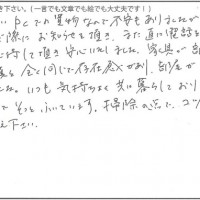 き下さい。(一言でも文章でも絵でも大丈夫です!)
い PCでの買物なので不安もありましたが
際にお知らせを頂き、また直に電話を
して頂き安心いたしました。家具が部
全く同じで存在感があり、部屋が
た。いつも気持ちよく共に暮らしており
そっと、ふいています。掃除の点で、コツ
え下さい。